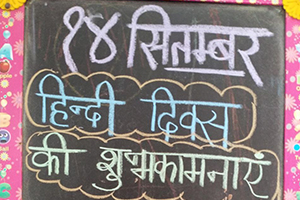 १४ सितम्बर
हिन्दी दिवस
की शुभकामनाएं